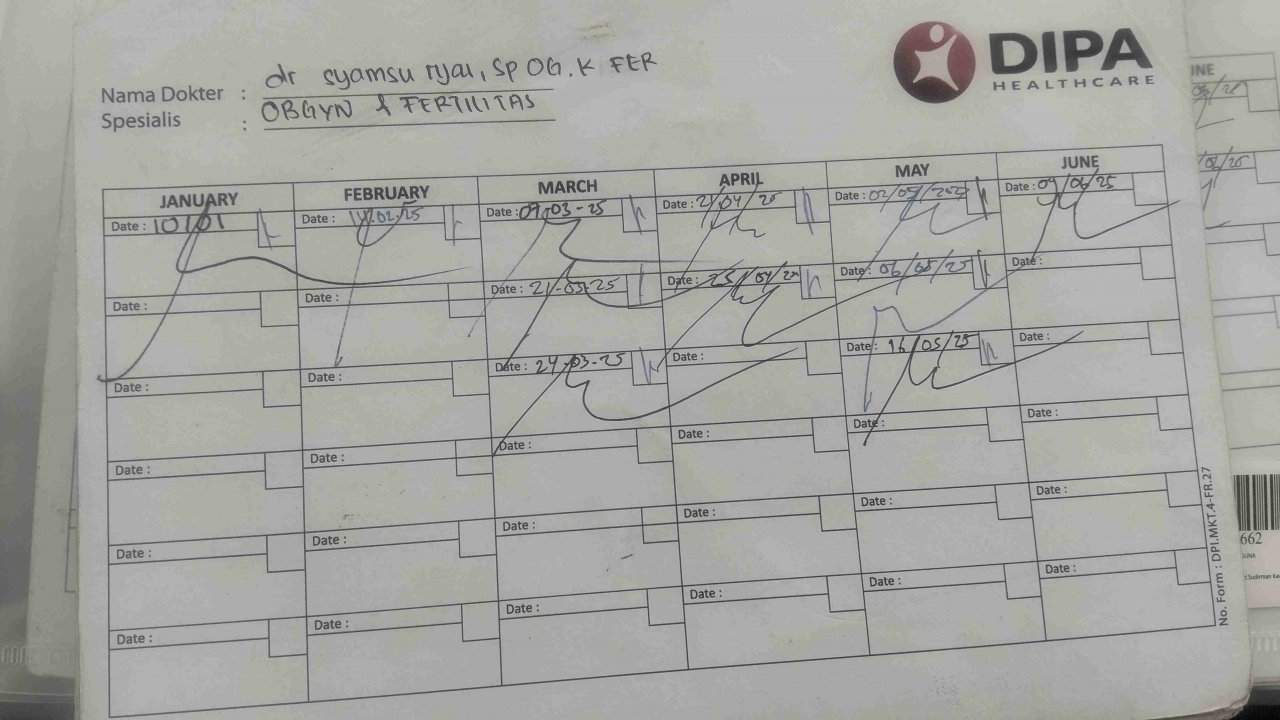 DIPA
HEALTHCARE
Nama Dokter : dr syamsu ryal, SP OG. K FER
Spesialis : OBGYN & FERTILITAS
JANUARY FEBRUARY MARCH APRIL MAY JUNE
Date : 10/01 Date : 14/02-25 Date : 09-03-25 Date : 21/04/25 Date : 02/05/2025 Date : 09/06/25
Date : Date : Date : 21-03-25 Date : 25/04/25 Date : 06/05/25 Date :
Date : Date : Date : 24-03-25 Date : Date : 16/05/25 Date :
Date : Date : Date : Date : Date : Date :
Date : Date : Date : Date : Date : Date :
Date : Date : Date : Date : Date : Date :
No. Form : DPI.MKT.4-FR.27
662